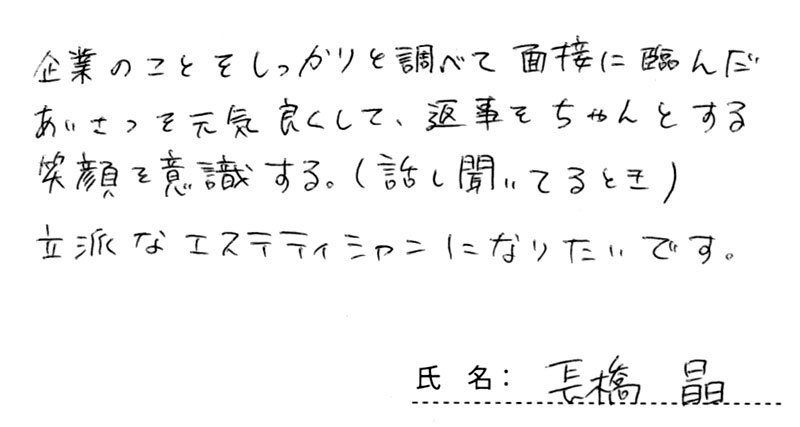 企業のことをしっかりと調べて面接に臨んだ
あいさつを元気良くして、返事をちゃんとする
笑顔を意識する。(話し聞いてるとき)
立派なエステティシャンになりたいです。
氏名: 長橋 晶